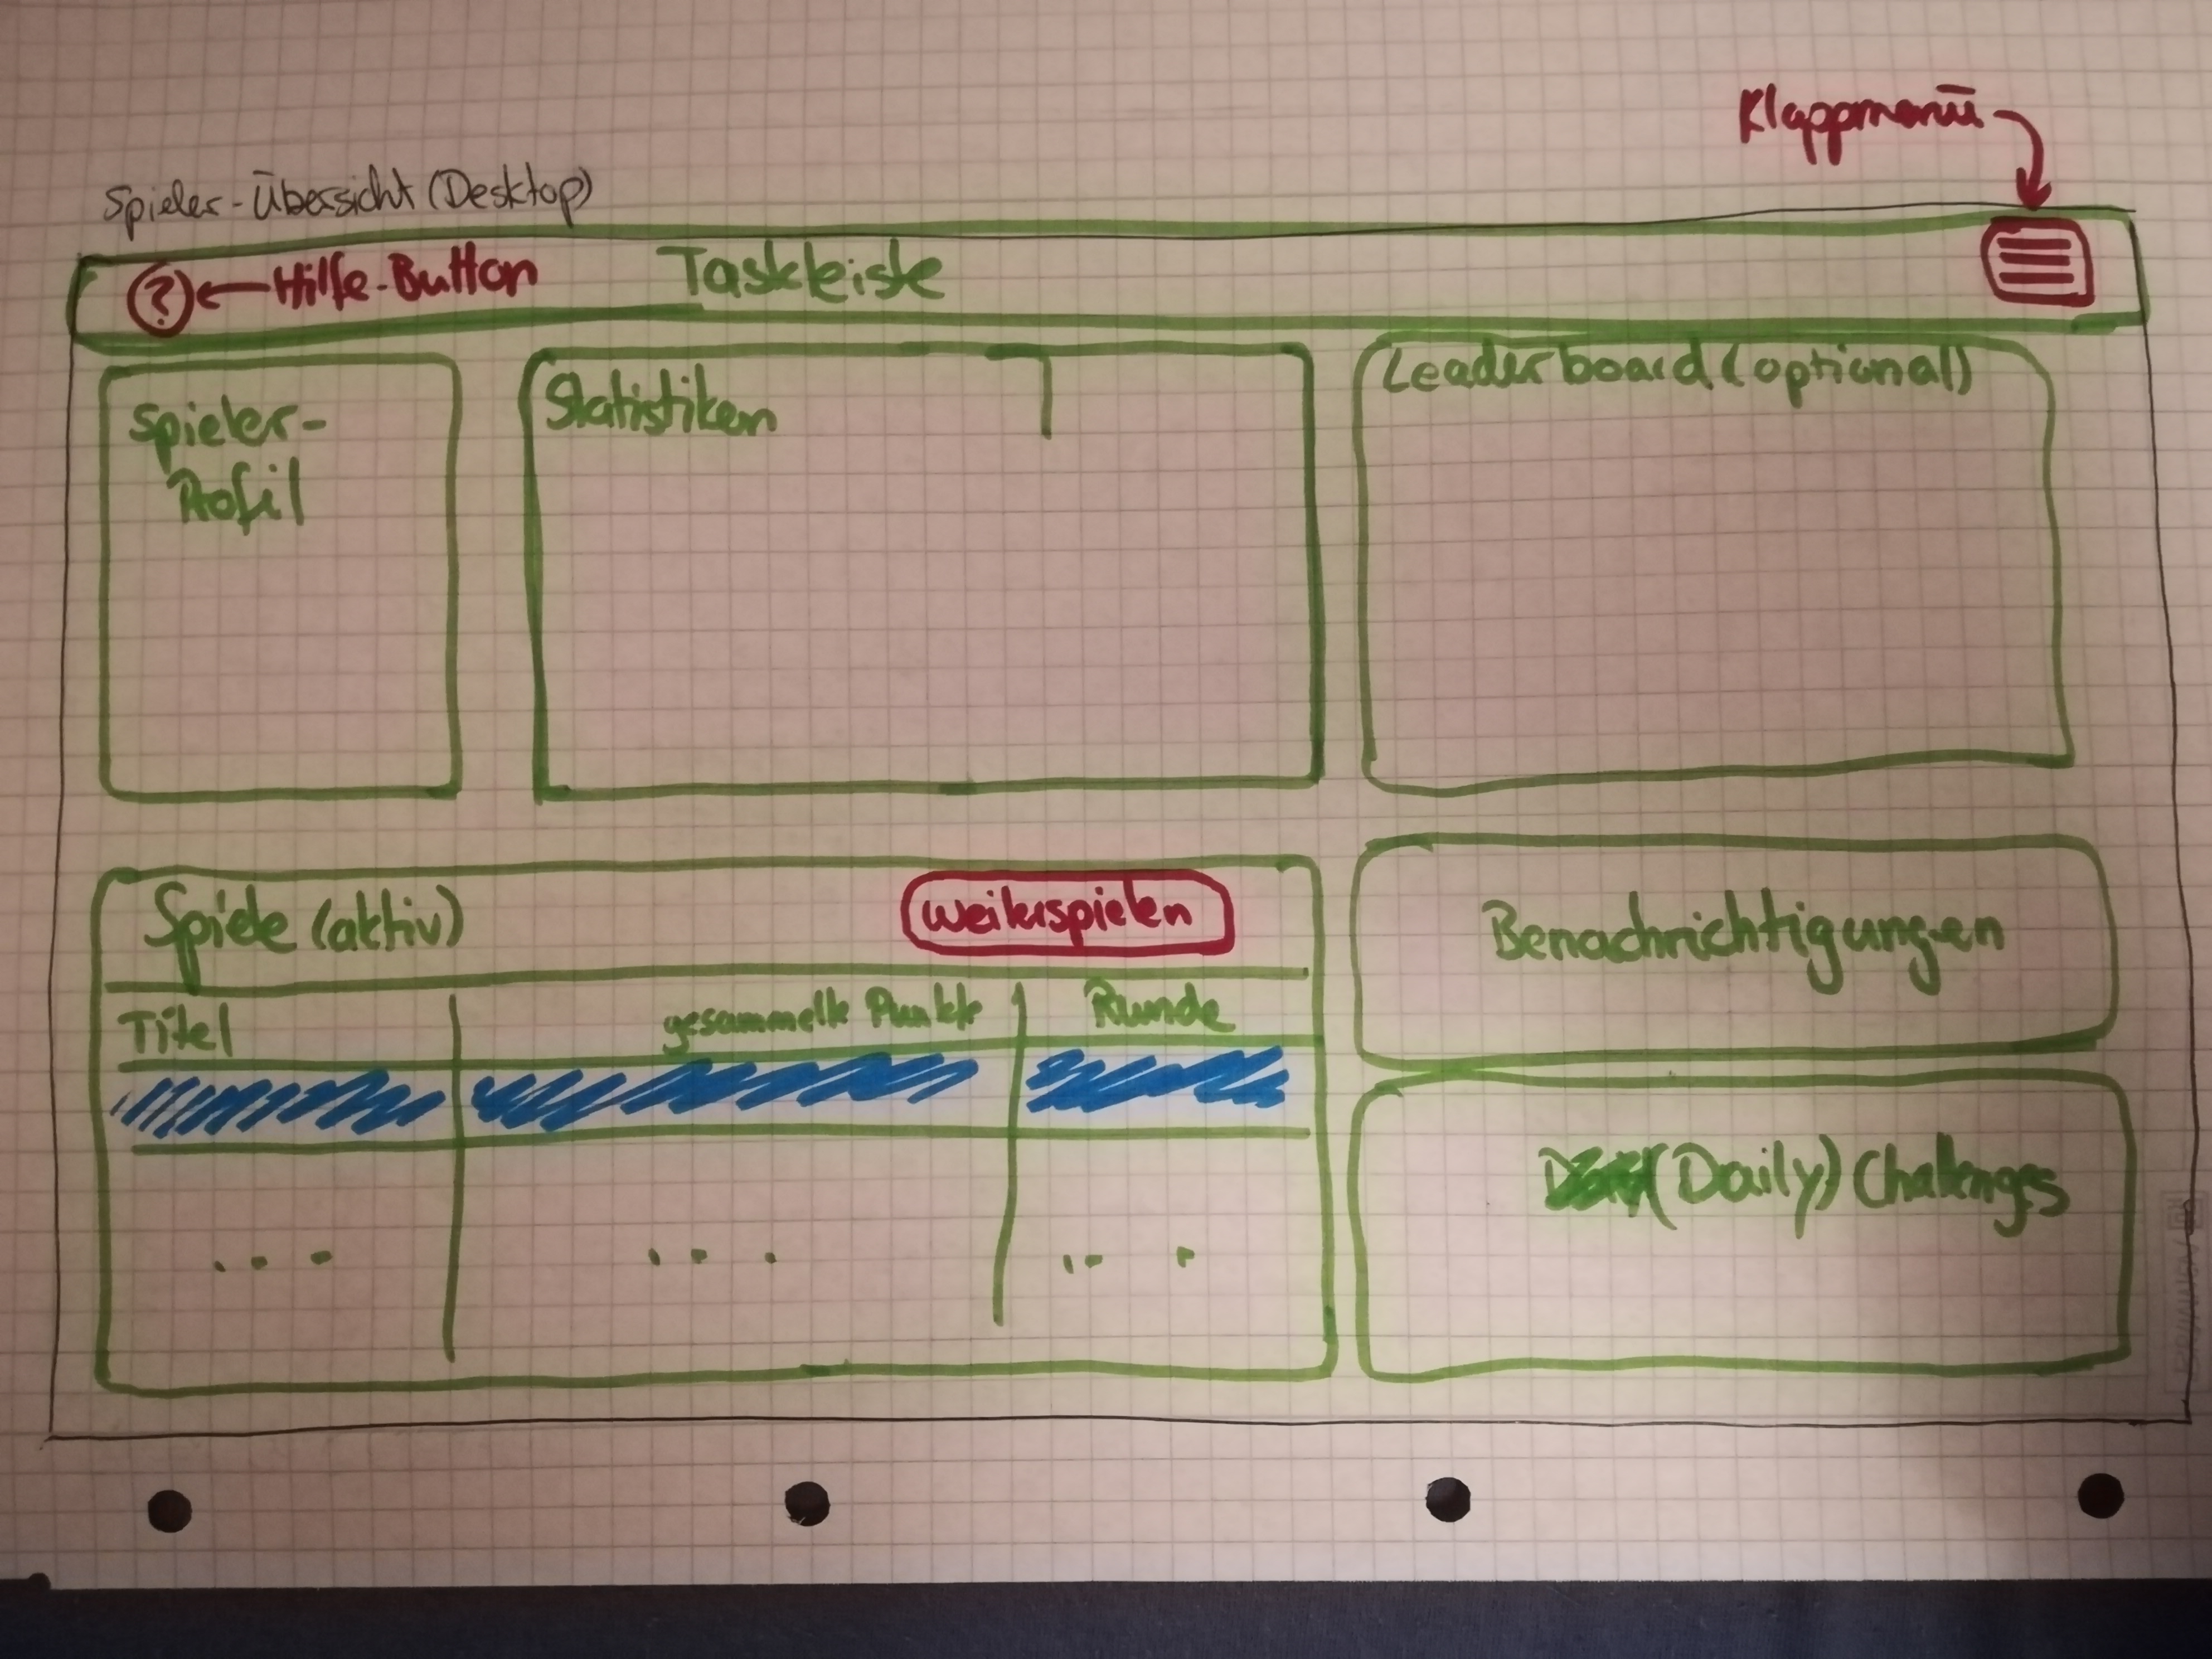 Klappmenü
Spieler-Übersicht (Desktop)
? Hilfe-Button Taskleiste
Spieler-
Profil
Statistiken
Leaderboard (optional)
Spiele (aktiv) weiterspielen
Titel gesammelte Punkte Runde
... ... ...
Benachrichtigungen
(Daily) Challenges